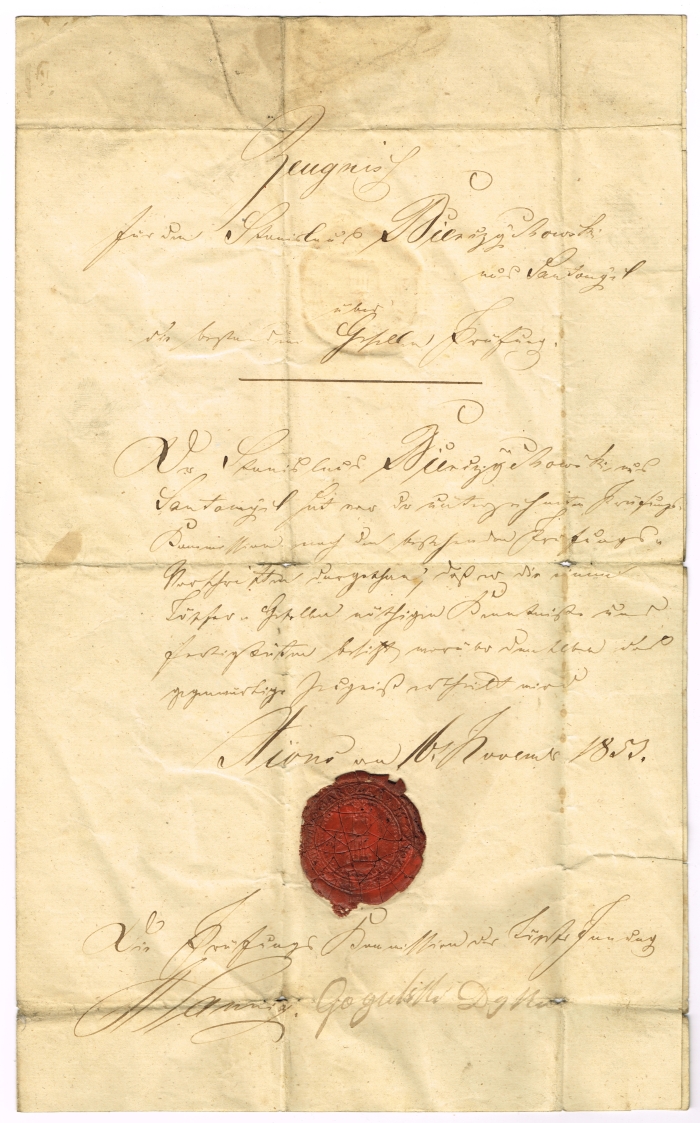 Zeugniß
für den Stanislaus Bieruzychowski
aus Santomysl
über
die bestandene Gesellen Prüfung.
Der Stanislaus Bieruzychowski aus
Santomysl hat vor der unterzeichneten Prüfungs-
Kommission nach den bestehenden Prüfungs-
Vorschriften dargethan, daß er die einem
Töpfer-Gesellen nöthigen Kenntniße und
Fertigkeiten besitzt, worüber demselben das
gegenwärtige Zeugniß ertheilt wird
den 16. November 1853.
Die Prüfungs Kommission der Töpfer Innung
Gogulski